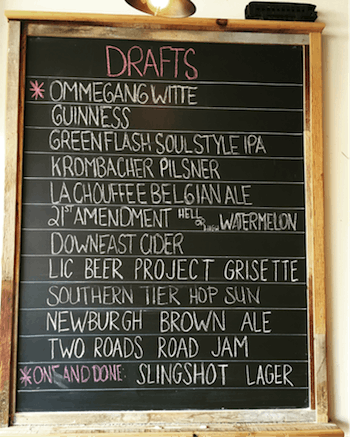 DRAFTS
* OMMEGANG WITTE
GUINNESS
GREEN FLASH SOUL STYLE IPA
KROMBACHER PILSNER
LA CHOUFFE BELGIAN ALE
21ST AMENDMENT HELL OR HIGH WATERMELON
DOWNEAST CIDER
LIC BEER PROJECT GRISETTE
SOUTHERN TIER HOP SUN
NEWBURGH BROWN ALE
TWO ROADS ROAD JAM
* ONE AND DONE: SLINGSHOT LAGER